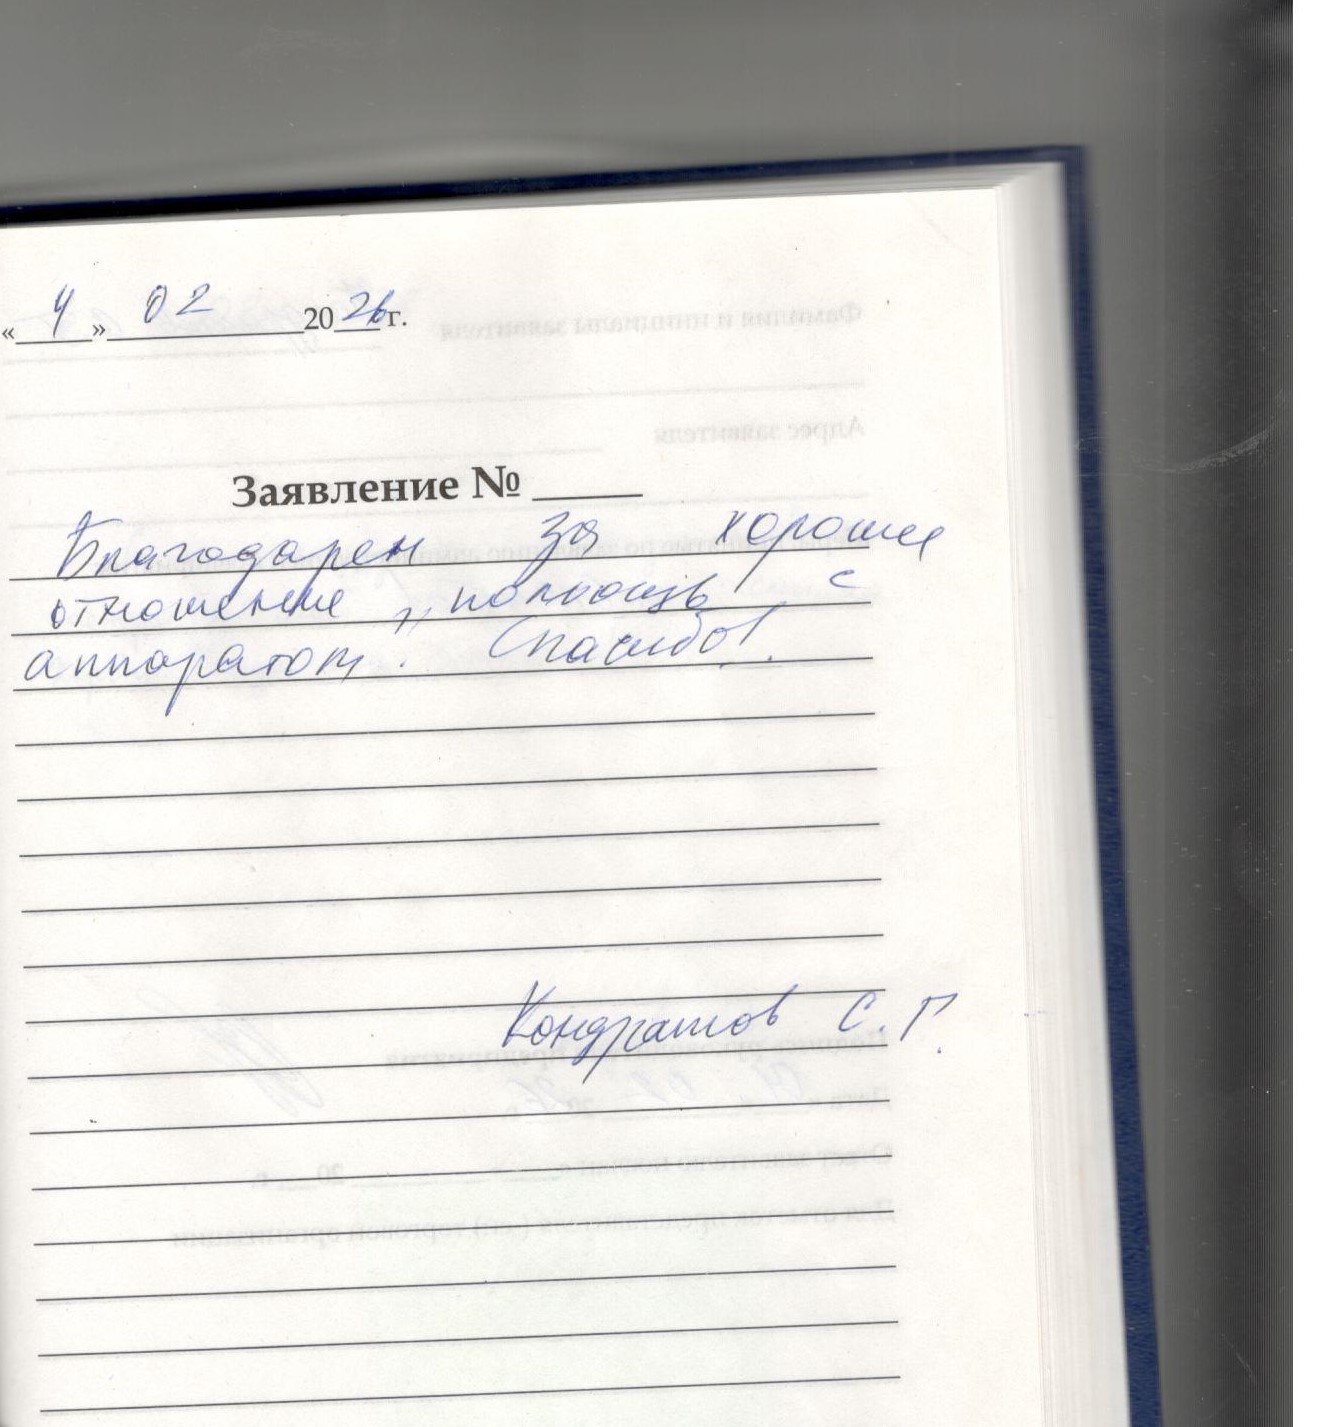 « 4 » 02 2026 г.
Заявление № ____
Благодарен за хорошее
отношение, помощь с
аппаратом. Спасибо!
Кондратов С. Г.